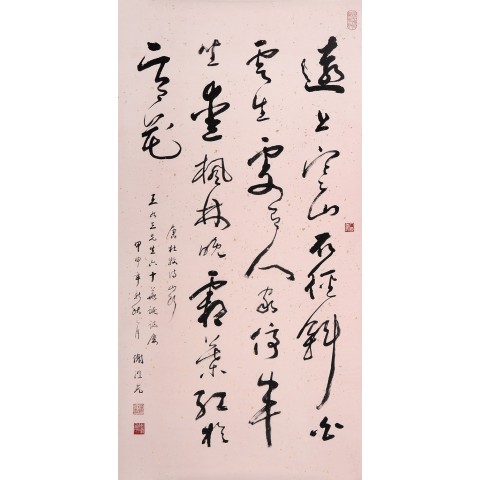 遠上寒山石徑斜白
雲生處有人家停車
坐愛楓林晚霜葉紅於
二月花
唐杜牧詩山行
王九三先生六十華誕
甲申年新秋月 謝